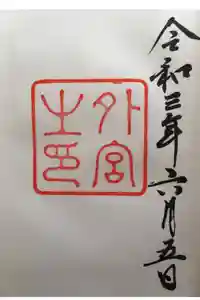 令和三年六月五日
外宮
之印